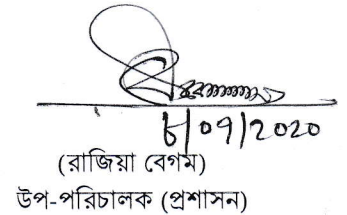 ৮/০৭/২০২০
(রাজিয়া বেগম)
উপ-পরিচালক (প্রশাসন)